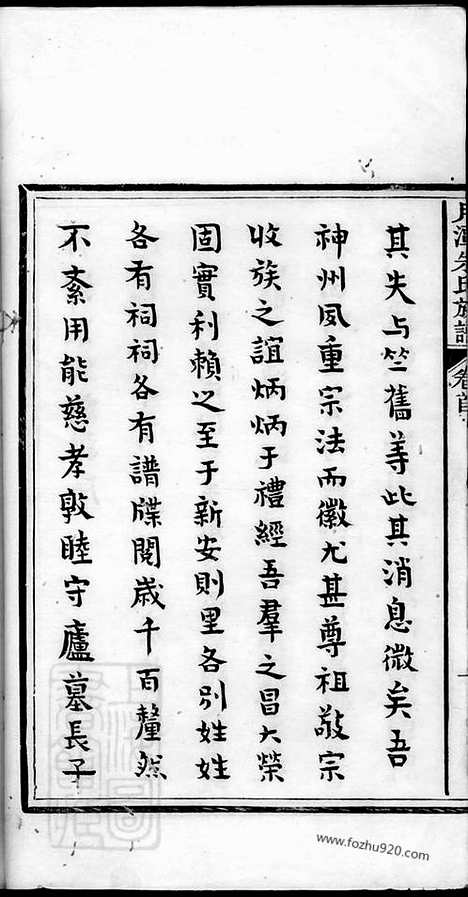 其失与竺舊等此其消息微矣吾
神州風重宗法而徽尤甚尊祖敬宗
收族之誼炳炳于禮經吾羣之昌大榮
固實利賴之至于新安則里各別姓姓
各有祠祠各有譜牒閱歲千百釐然
不紊用能慈孝敦睦守廬墓長子
潭朱氏族譜
卷首
www.fozhu920.com